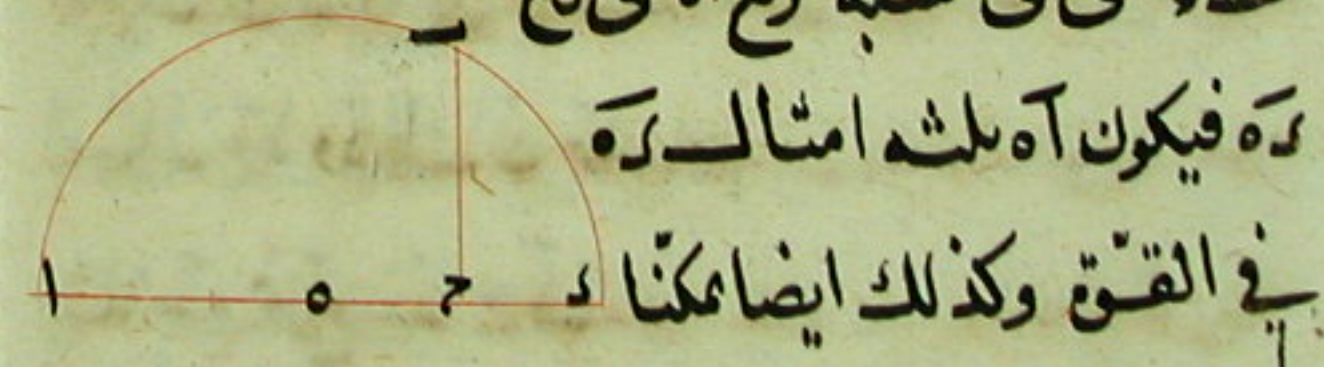 رَه فيكون آه ثلثه امثال رَه
في القوّة وكذلك ايضا يمكنّا
ب
ا ه ح د